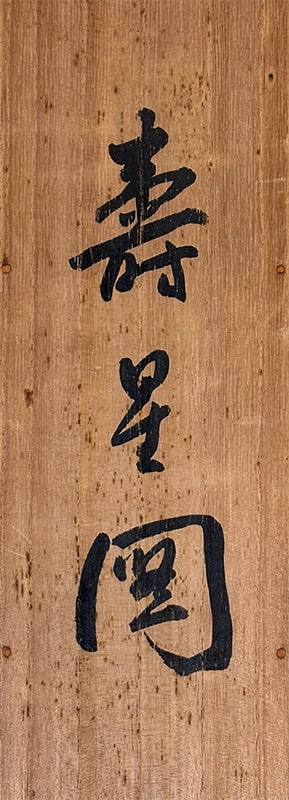 壽星圖